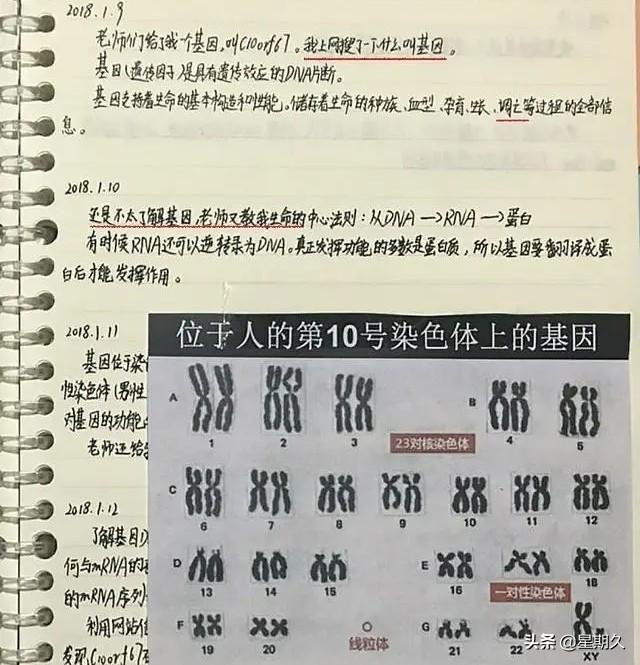 2018.1.9
老师们给了我一个基因,叫C10orf67。我上网搜了一下什么叫基因。
基因(遗传因子)是具有遗传效应的DNA片断。
基因支持着生命的基本构造和性能。储存着生命的种族、血型、孕育、生长、凋亡等过程的全部信
息。
2018.1.10
还是不太了解基因,老师又教我生命的中心法则:从DNA→RNA→蛋白
有时候RNA还可以逆转录为DNA。真正发挥功能的多数是蛋白质,所以基因要翻译成蛋
白后才能发挥作用。
2018.1.11
基因位于染
性染色体(男性
对基因的功能
老师还给
2018.1.12
了解基因
何与mRNA的
的mRNA序列
利用网站
发现C10orf67
位于人的第10号染色体上的基因
A
1 2 3
B
4 5
23对核染色体
C
6 7 8 9 10 11 12
D
13 14 15
E
16 18
一对性染色体
F
19 20
线粒体
G
21 22
XY
头条 @星期久